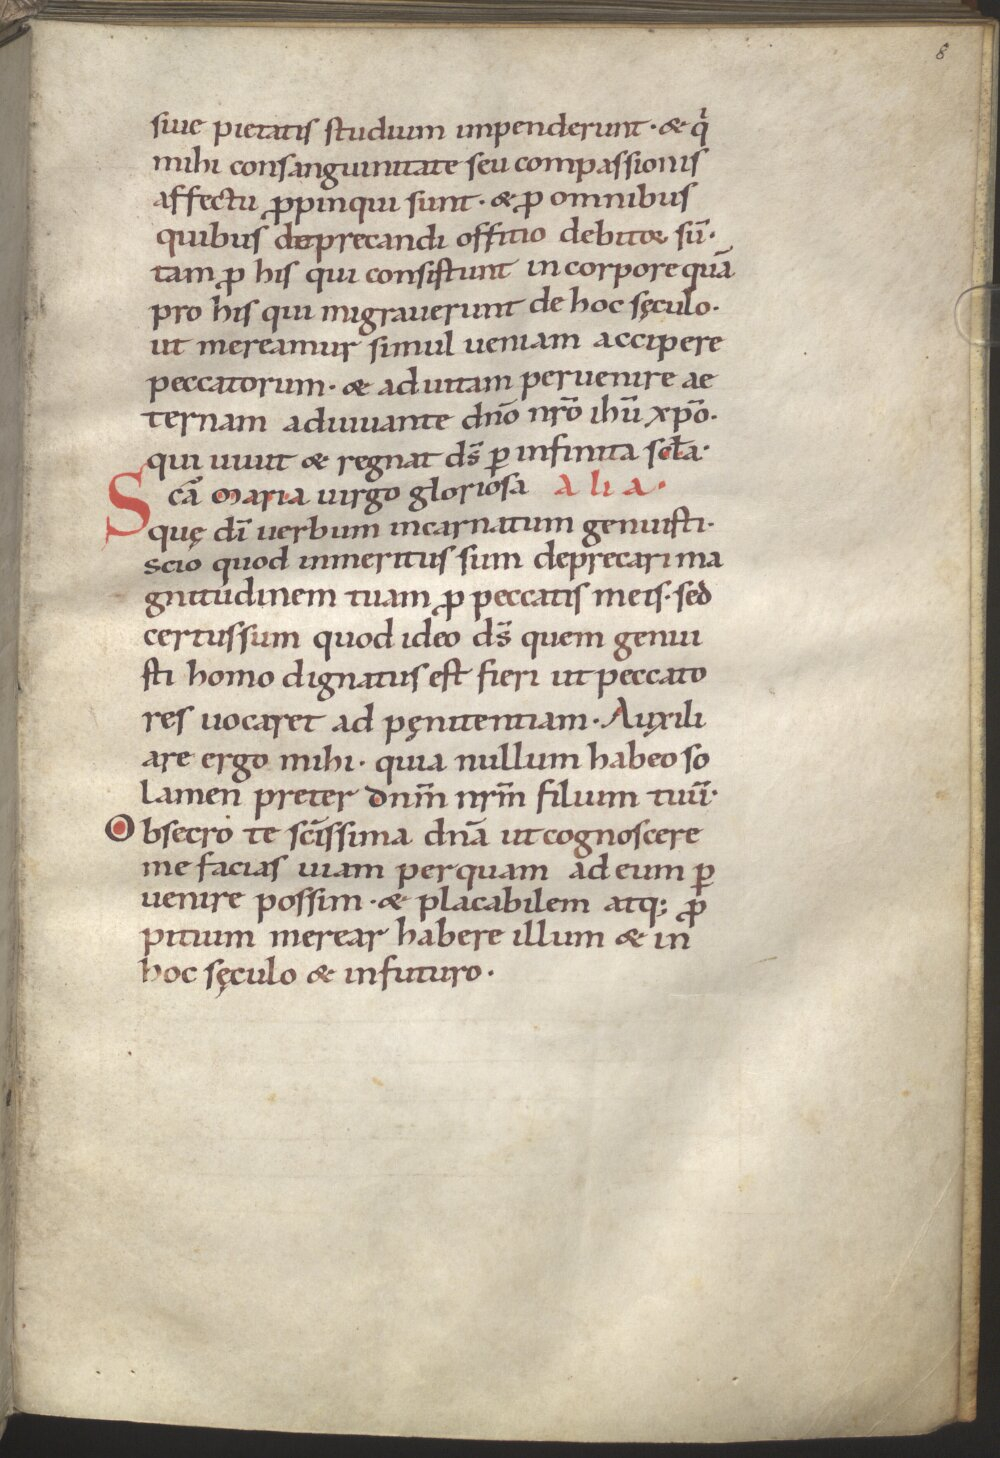 8
siue pietatis studium impenderunt· & qͥ
mihi consanguinitate seu compassionis
affectu ꝓpinqui sunt· & ꝓ omnibus
quibus deprecandi offitio debitor sū·
tam ꝓ his qui consistunt in corpore quā
pro his qui migrauerunt de hoc sęculo·
ut mereamur simul ueniam accipere
peccatorum· & ad uitam peruenire ae
ternam adiuuante dn̄o nr̄o ihū xp̄o·
qui uiuit & regnat ds̄ ꝑ infinita scła·
Scā Maria uirgo gloriosa alia·
quę dī uerbum incarnatum genuisti·
scio quod inmeritus sum deprecari ma
gnitudinem tuam ꝓ peccatis meis· sed
certus sum quod ideo ds̄ quem genui
sti homo dignatus est fieri ut peccato
res uocaret ad pęnitentiam· Auxili
are ergo mihi· quia nullum habeo so
lamen preter dnm̄ nrm̄ filium tuū·
Obsecro te scīssima dnā ut cognoscere
me facias uiam per quam ad eum ꝑ
uenire possim· & placabilem atq; ꝓ
pitium merear habere illum & in
hoc sęculo & in futuro·